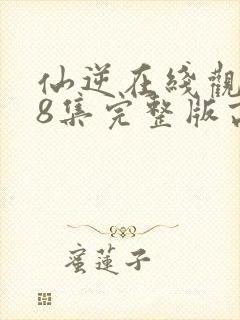 仙逆在綫觀
8集完整版
蜜蓮子